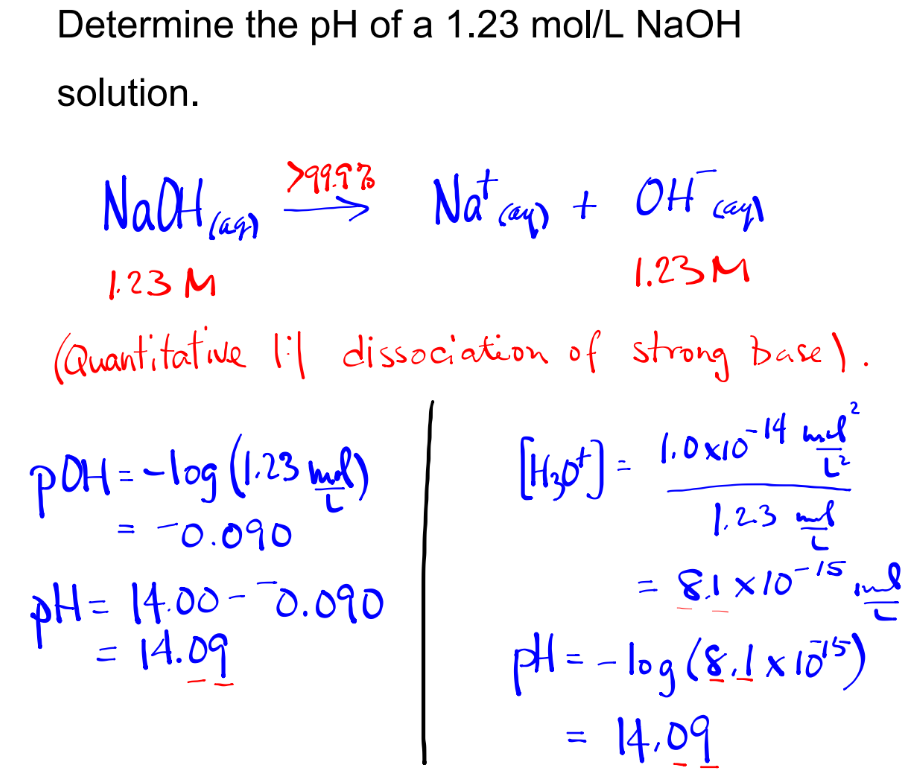 Determine the pH of a 1.23 mol/L NaOH
solution.
NaOH(aq) >99.9% → Na⁺(aq) + OH⁻(aq)
1.23 M 1.23 M
(Quantitative 1:1 dissociation of strong base).
pOH = -log(1.23 mol/L)
= ⁻0.090
pH = 14.00 - ⁻0.090
= 14.09
[H₃O⁺] = 1.0x10⁻¹⁴ mol²/L² / 1.23 mol/L
= 8.1 x 10⁻¹⁵ mol/L
pH = -log(8.1 x 10⁻¹⁵)
= 14.09